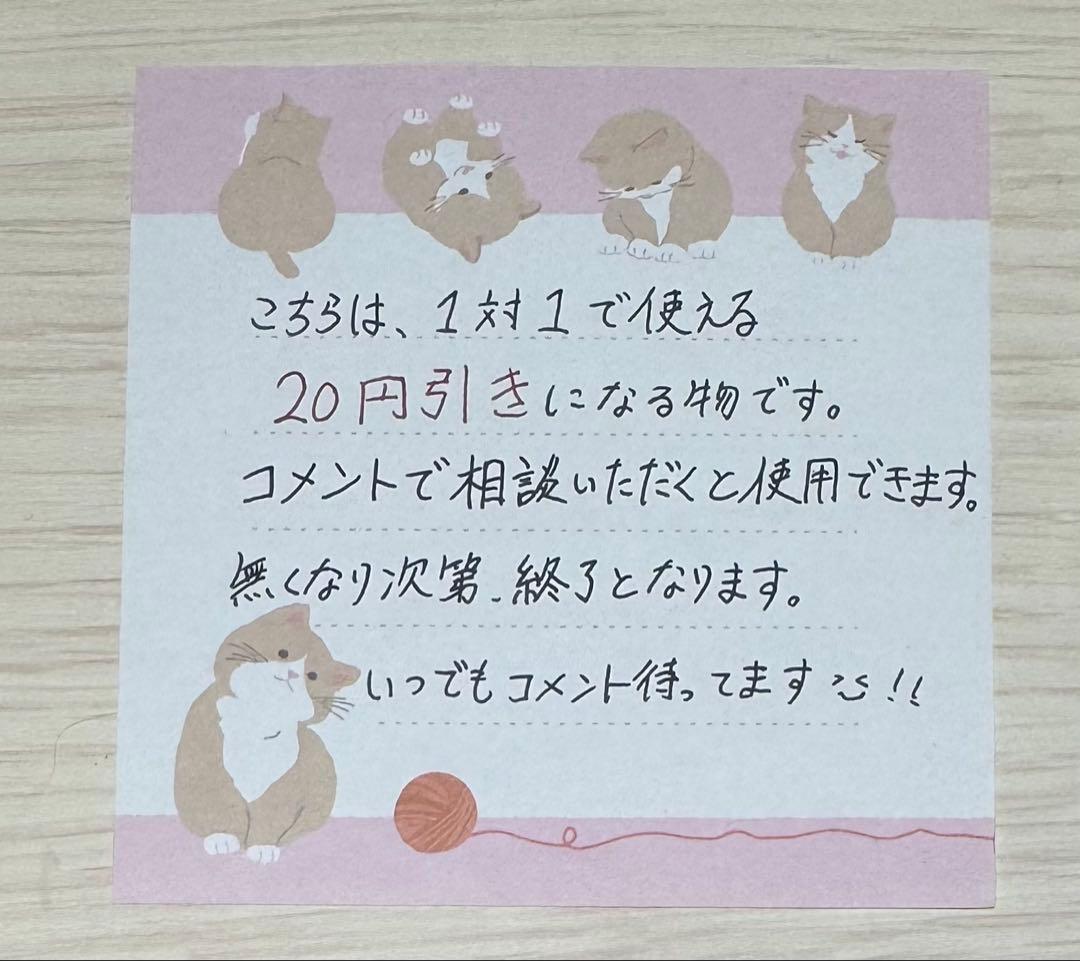 こちらは、1対1で使える
20円引きになる物です。
コメントで相談いただくと使用できます。
無くなり次第、終了となります。
いつでもコメント待ってます!!